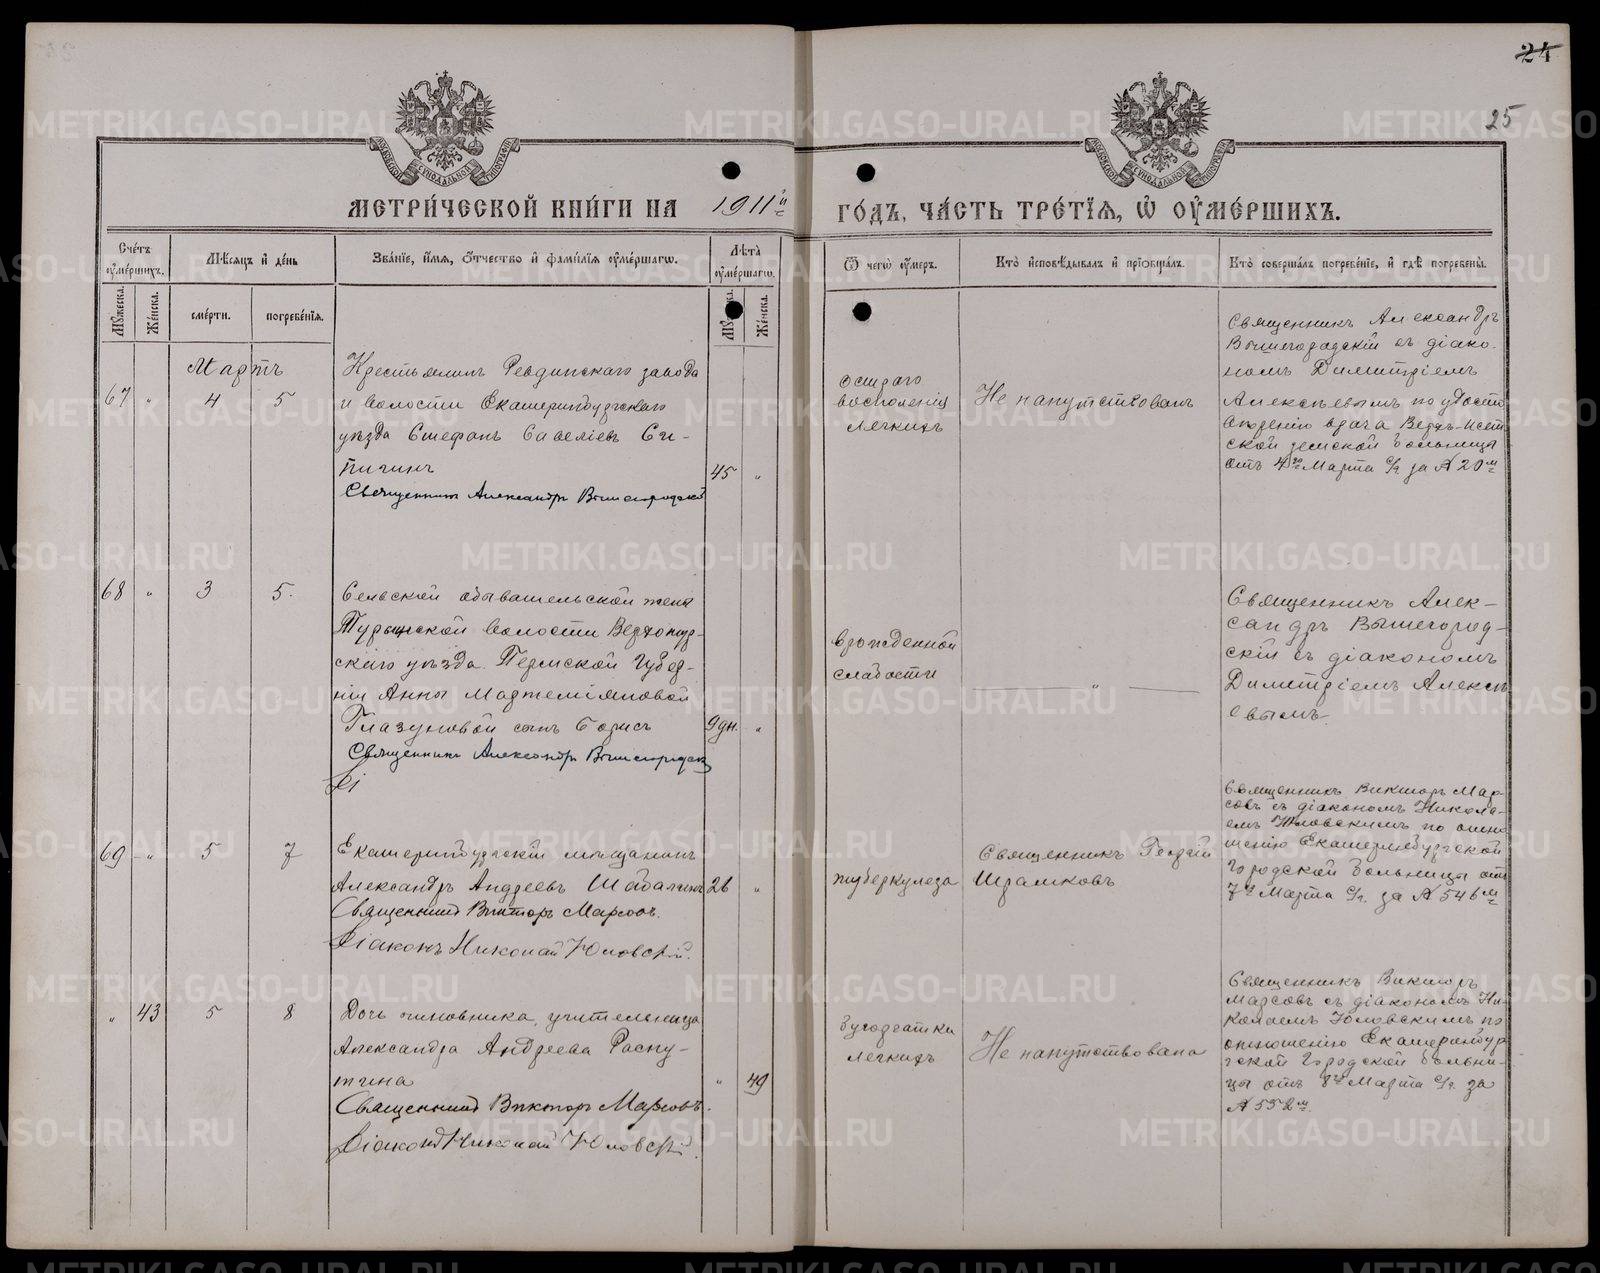 24
25
МЕТРИ́ЧЕСКОЙ КНИ́ГИ НА 1911й
ГО́ДЪ, ЧА́СТЬ ТРЕ́ТІЯ, Ѽ ОУ҆МЕ́РШИХЪ.
Сче́тъ оу҆ме́ршихъ.
Мѣ́сяцъ и҆ де́нь
Зва́нїе, и҆́мя, ѻ҆́тчество и҆ фами́лїя оу҆ме́ршагѡ.
Лѣ̀та оу҆ме́ршагѡ.
Ѿ чегѡ̀ оу҆́меръ.
Кто̀ и҆сповѣ́дывалъ и҆ прїѡбща́лъ.
Кто̀ соверша́лъ погребе́нїе, и҆ гдѣ̀ погребены̀.
Мꙋ́жеска.
Же́нска.
сме́рти.
погребе́нїѧ.
Мꙋ́жеска.
Же́нска.
Мартъ
67 " 4 5
Крестьянинъ Ревдинскаго завода
и волости Екатеринбургскаго
уѣзда Стефанъ Савеліевъ Си-
пигинъ
45 "
Священникъ Александръ Вышегородскій
остраго
воспаленія
легкихъ
Не напутствованъ
Священникъ Александръ
Вышегородскій съ діако-
номъ Димитріемъ
Алексѣевымъ по удосто
вѣренію врача Верхъ-Исет
ской земской больницы
отъ 4го Марта с/г за № 20м
68 " 3 5.
Сельской обывательской жены
Турьинской волости Верхотур-
скаго уѣзда Пермской губер-
ніи Анны Мартеміяновой
Глазуновой сынъ Борисъ
9 дн. "
Священникъ Александръ Вышегородск
ій
врожденной
слабости
"
Священникъ Алек-
сандръ Вышегород-
скій съ діакономъ
Димитріемъ Алексѣ
евымъ.
69 " 5 7
Екатеринбургскій мѣщанинъ
Александръ Андреевъ Шабалинъ
26 "
Священникъ Викторъ Марсовъ.
Діаконъ Николай Юловскій.
туберкулеза
Священникъ Георгій
Шрамковъ
Священникъ Викторъ Мар-
совъ съ діакономъ Никола-
емъ Юловскимъ по отно-
шенію Екатеринбургской
Городской больницы отъ
7го Марта с/г. за № 546м
" 43 5 8
Дочь чиновника, учительница
Александра Андреева Распу-
тина
" 49
Священникъ Викторъ Марсовъ.
Діаконъ Николай Юловскій.
бугорчатки
легкихъ
Не напутствована
Священникъ Викторъ
Марсовъ съ діакономъ Ни-
колаемъ Юловскимъ по
отношенію Екатеринбур
гской Городской больни-
цы отъ 8го Марта с/г за
№ 552м.
METRIKI.GASO-URAL.RU